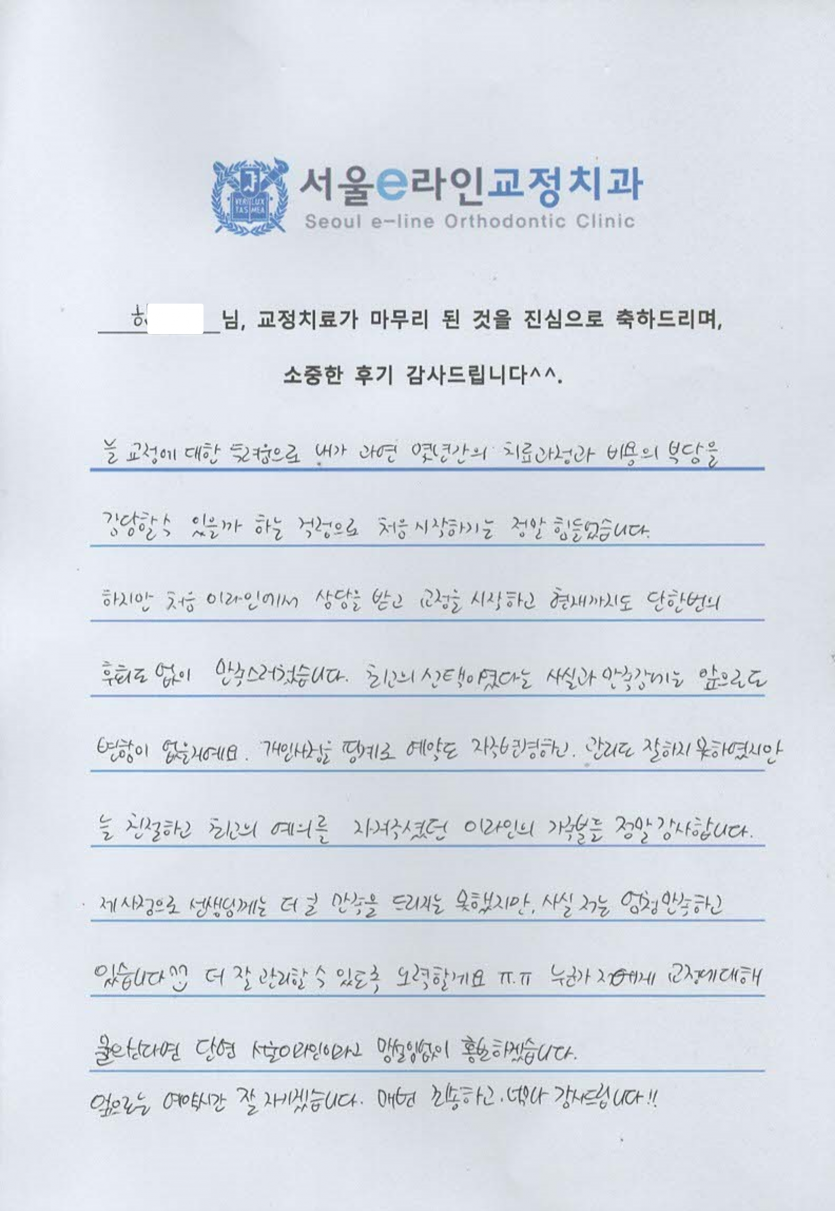 서울e라인교정치과
Seoul e-line Orthodontic Clinic
님, 교정치료가 마무리 된 것을 진심으로 축하드리며,
소중한 후기 감사드립니다^^.
늘 교정에 대한 두려움으로 내가 과연 몇년간의 치료과정과 비용의 부담을
감당할수 있을까 하는 걱정으로 처음 시작하기는 정말 힘들었습니다.
하지만 처음 이라인에서 상담을 받고 교정을 시작하고 현재까지도 단한번의
후회도 없이 만족스러웠습니다. 최고의 선택이였다는 사실과 만족감에는 앞으로도
변함이 없을거예요. 개인사정을 핑계로 예약도 자주변경하고, 관리도 잘하지 못하였지만
늘 친절하고 최고의 예의를 지켜주셨던 이라인의 가족분들 정말 감사합니다.
제 사정으로 선생님께는 더 큰 만족을 드리지는 못했지만, 사실 저는 엄청만족하고
있습니다^^ 더 잘 관리할 수 있도록 노력할게요 ㅠ.ㅠ 누군가 저에게 교정에대해
물으신다면 단연 서울이라인이라고 망설임없이 홍보하겠습니다.
앞으로는 예약시간 잘 지키겠습니다. 매번 죄송하고, 너무나 감사드립니다!!